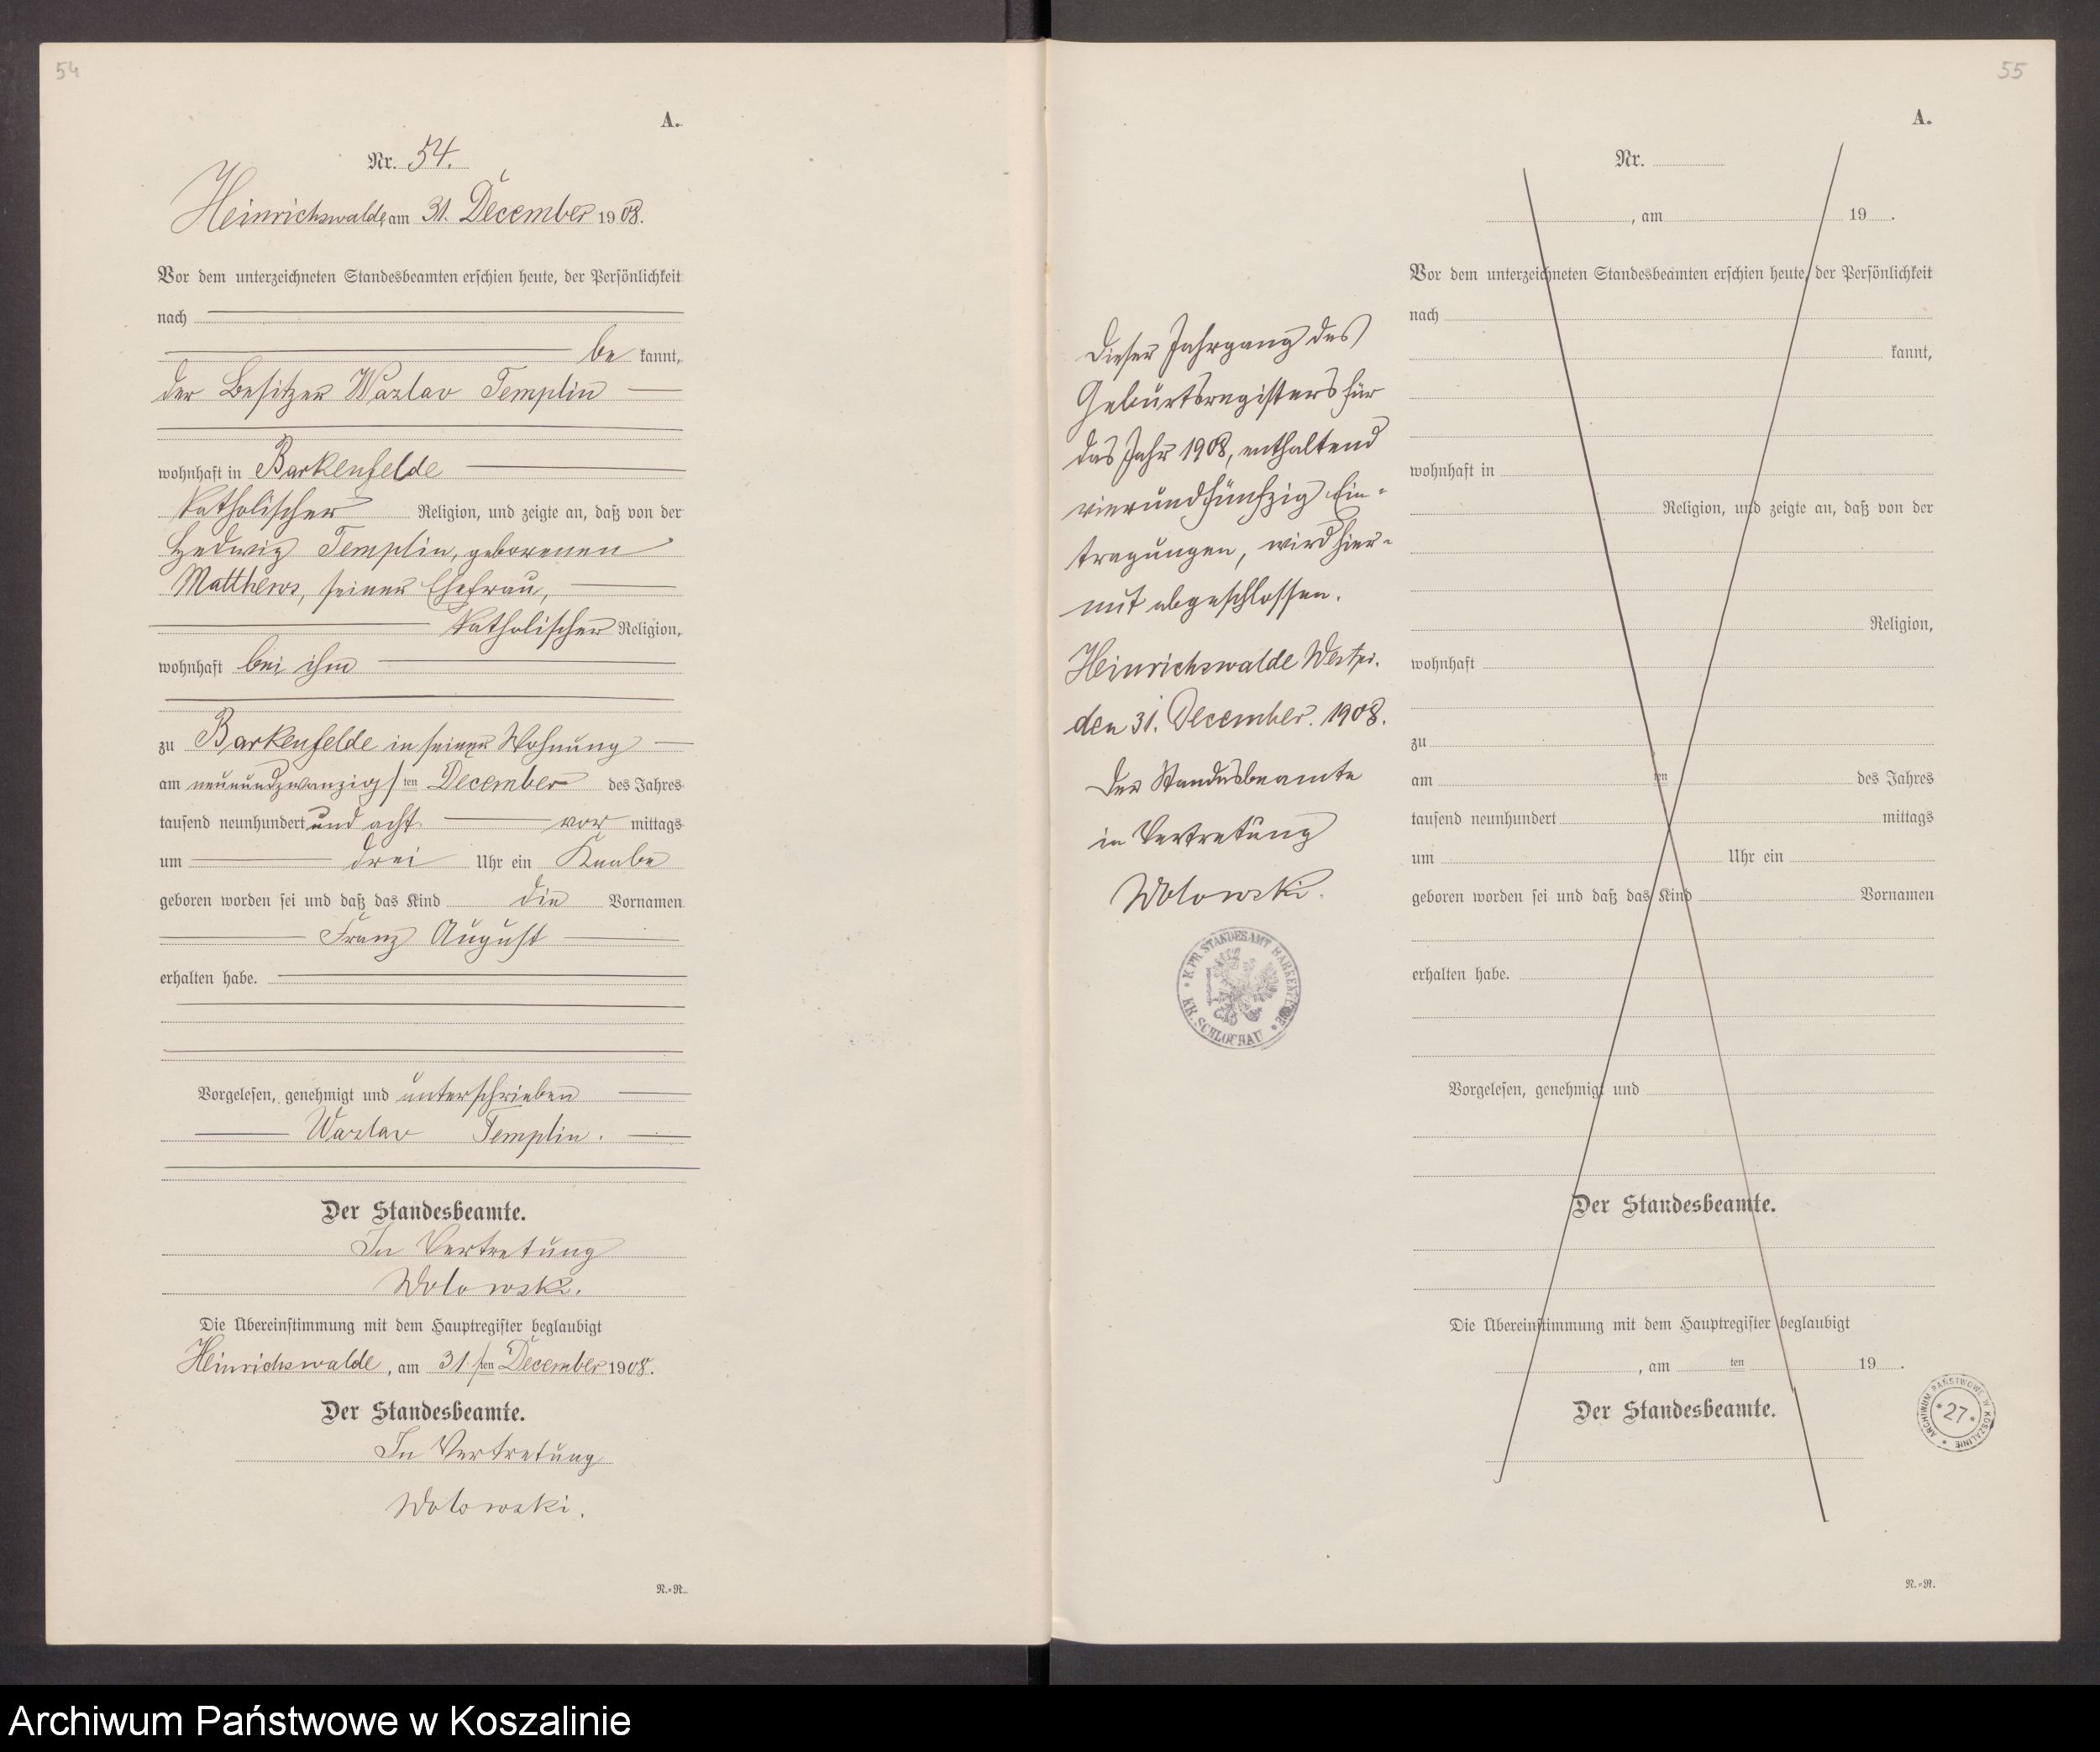 54
A.
Nr. 54.
Heinrichswalde, am 31. December 1908.
Vor dem unterzeichneten Standesbeamten erschien heute, der Persönlichkeit
nach
be kannt,
der Besitzer Wazlav Templin
wohnhaft in Barkenfelde
katholischer Religion, und zeigte an, daß von der
Hedwig Templin, geborenen
Matthews, seiner Ehefrau,
katholischer Religion,
wohnhaft bei ihm
zu Barkenfelde in seiner Wohnung
am neunundzwanzig ten December des Jahres
tausend neunhundert und acht vor mittags
um drei Uhr ein Knabe
geboren worden sei und daß das Kind die Vornamen
Franz August
erhalten habe.
Vorgelesen, genehmigt und unterschrieben
Wazlav Templin.
Der Standesbeamte.
In Vertretung
Wolowski.
Die Übereinstimmung mit dem Hauptregister beglaubigt
Heinrichswalde, am 31. ten December 1908.
Der Standesbeamte.
In Vertretung
Wolowski.
N.=R.
55
Dieser Jahrgang des
Geburtsregisters für
das Jahr 1908, enthaltend
vierundfünfzig Ein-
tragungen, wird hier-
mit abgeschlossen.
Heinrichswalde Westpr.
den 31. December. 1908.
Der Standesbeamte
in Vertretung
Wolowski.
K. PR. STANDESAMT BARKENFELDE
KR. SCHLOCHAU
A.
Nr.
, am 19 .
Vor dem unterzeichneten Standesbeamten erschien heute, der Persönlichkeit
nach
kannt,
wohnhaft in
Religion, und zeigte an, daß von der
Religion,
wohnhaft
zu
am ten des Jahres
tausend neunhundert mittags
um Uhr ein
geboren worden sei und daß das Kind Vornamen
erhalten habe.
Vorgelesen, genehmigt und
Der Standesbeamte.
Die Übereinstimmung mit dem Hauptregister beglaubigt
, am ten 19 .
Der Standesbeamte.
ARCHIWUM PAŃSTWOWE W KOSZALINIE
*27*
N.=R.
Archiwum Państwowe w Koszalinie